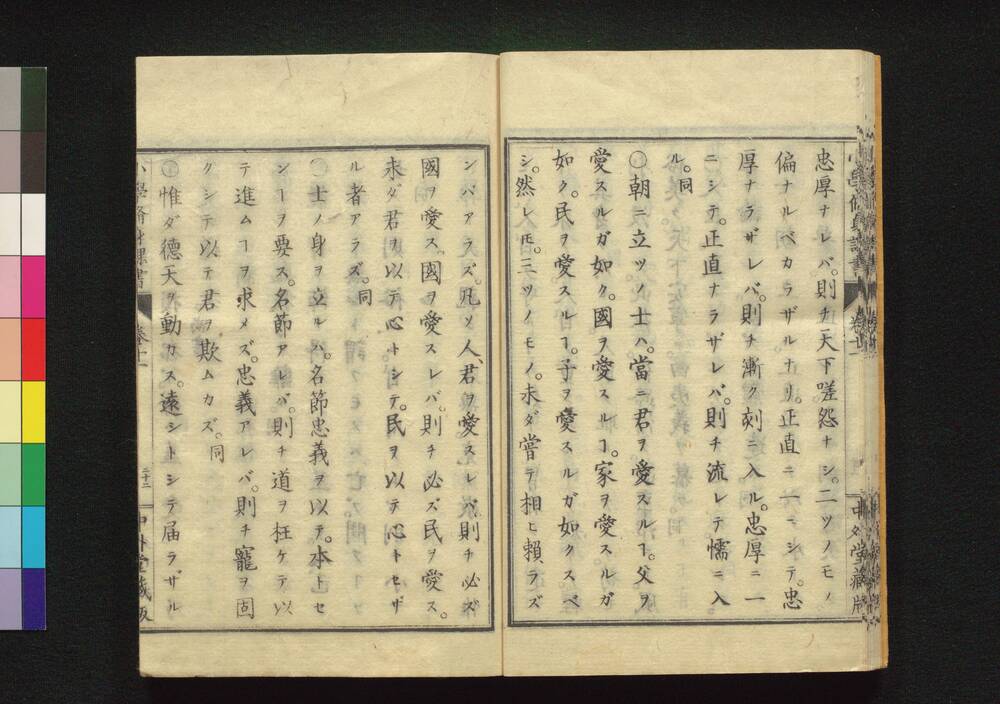 忠厚ナレバ。則チ天下嗟怨ナシ。二ツノモノ
偏ナルベカラザルナリ。正直ニ一ニシテ。忠
厚ナラザレバ。則チ漸ク刻ニ入ル。忠厚ニ一
ニシテ。正直ナラザレバ。則チ流レテ懦ニ入
ル。同
〇朝ニ立ツノ士ハ。當ニ君ヲ愛スルヿ。父ヲ
愛スルガ如ク。國ヲ愛スルヿ。家ヲ愛スルガ
如ク。民ヲ愛スルヿ。子ヲ愛スルガ如クスベ
シ。然レ𪜈。三ツノモノ。未ダ嘗テ相ヒ賴ラズ
ンバアラズ。凡ソ人。君ヲ愛スレバ。則チ必ズ
國ヲ愛ス。國ヲ愛スレバ。則チ必ズ民ヲ愛ス。
未ダ君ヲ以テ心トシテ。民ヲ以テ心トセザ
ル者アラズ。同
〇士ノ身ヲ立ルハ。名節忠義ヲ以テ。本トセ
ンヿヲ要ス。名節アレバ。則チ道ヲ枉ケテ以
テ進ムヿヲ求メズ。忠義アレバ。則チ寵ヲ固
クシテ以テ君ヲ欺ムカズ。同
〇惟ダ德天ヲ動カス。遠シトシテ届ラザル
卷十一
二十三
中外堂藏版